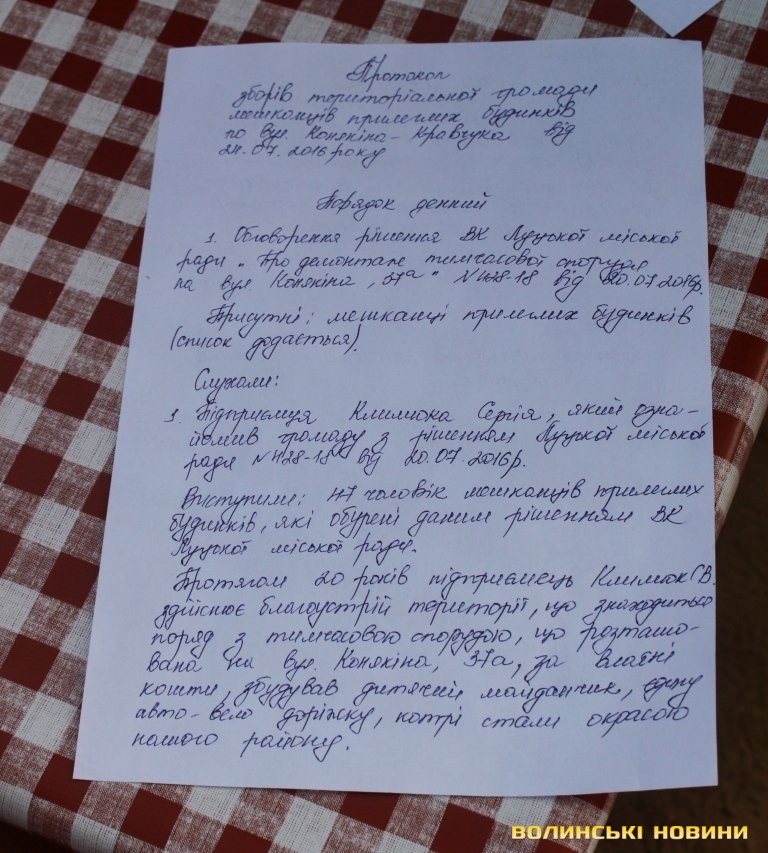 Протокол
зборів територіальної громади
мешканців прилеглих будинків
по вул. Конякіна – Кравчука від
21.07.2016 року
Порядок денний
1. Обговорення рішення ВК Луцької міської
ради „Про демонтаж тимчасової споруди
на вул. Конякіна, 37а" №428-18 від 20.07.2016р.
Присутні: мешканці прилеглих будинків
(список додається).
Слухали:
1. Підприємця Климюка Сергія, який озна-
йомив громаду з рішенням Луцької міської
ради №428-18 від 20.07.2016р.
Виступили: 47 чоловік мешканців прилеглих
будинків, які обурені даним рішенням ВК
Луцької міської ради.
Протягом 20 років підприємець Климюк С.В.
здійснює благоустрій території, що знаходиться
поряд з тимчасовою спорудою, що розташо-
вана на вул. Конякіна, 37а, за власні
кошти, збудував дитячий майданчик, єдину
авто-вело доріжку, котрі стали окрасою
нашого району.
ВОЛИНСЬКІ НОВИНИ